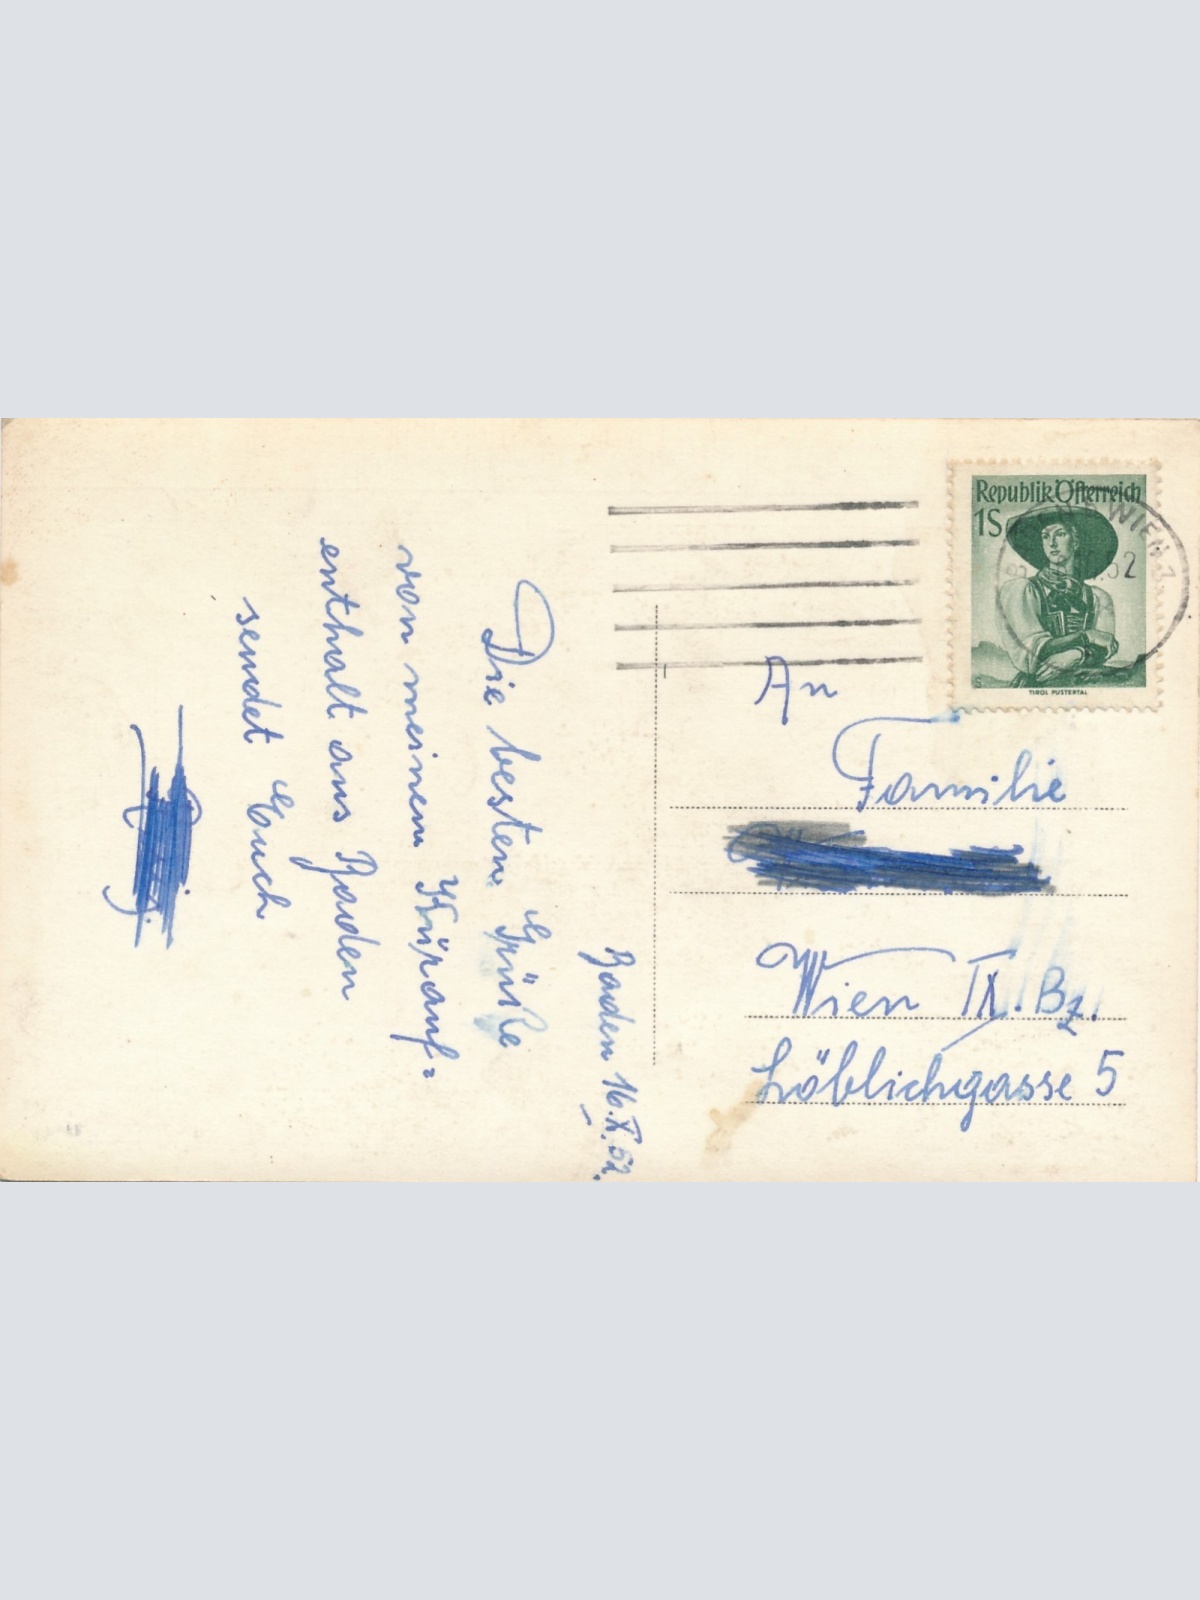 Baden 16.X.52.
Die besten Grüße
von meinem Kürauf=
enthalt aus Baden
sendet Euch
Republik Österreich
1S
TIROL PUSTERTAL
WIEN
An
Familie
Wien IX. Bz.
Löblichgasse 5